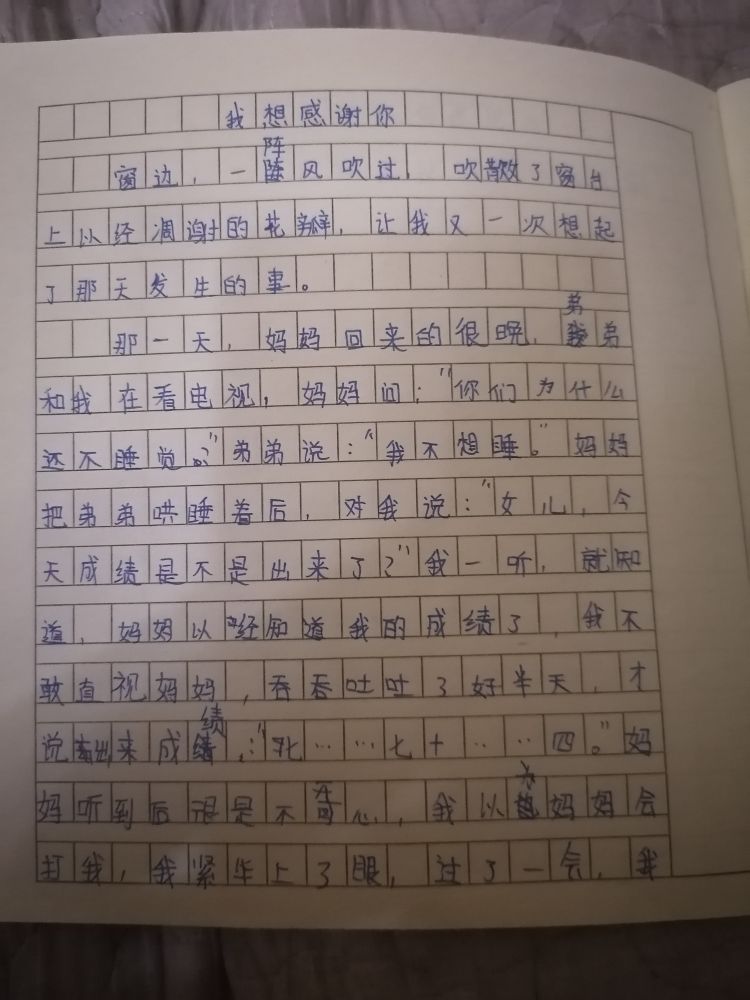 我想感谢你
窗边，一阵风吹过，吹散了窗台
上以经凋谢的花瓣，让我又一次想起
了那天发生的事。
那一天，妈妈回来的很晚，弟弟
和我在看电视，妈妈问：“你们为什么
还不睡觉？”弟弟说：“我不想睡。”妈妈
把弟弟哄睡着后，对我说：“女儿，今
天成绩是不是出来了？”我一听，就知
道，妈妈以经知道我的成绩了，我不
敢直视妈妈，吞吞吐吐了好半天，才
说出来成绩：“七……七十……四。”妈
妈听到后很是不开心，我以为妈妈会
打我，我紧上了眼，过了一会，我